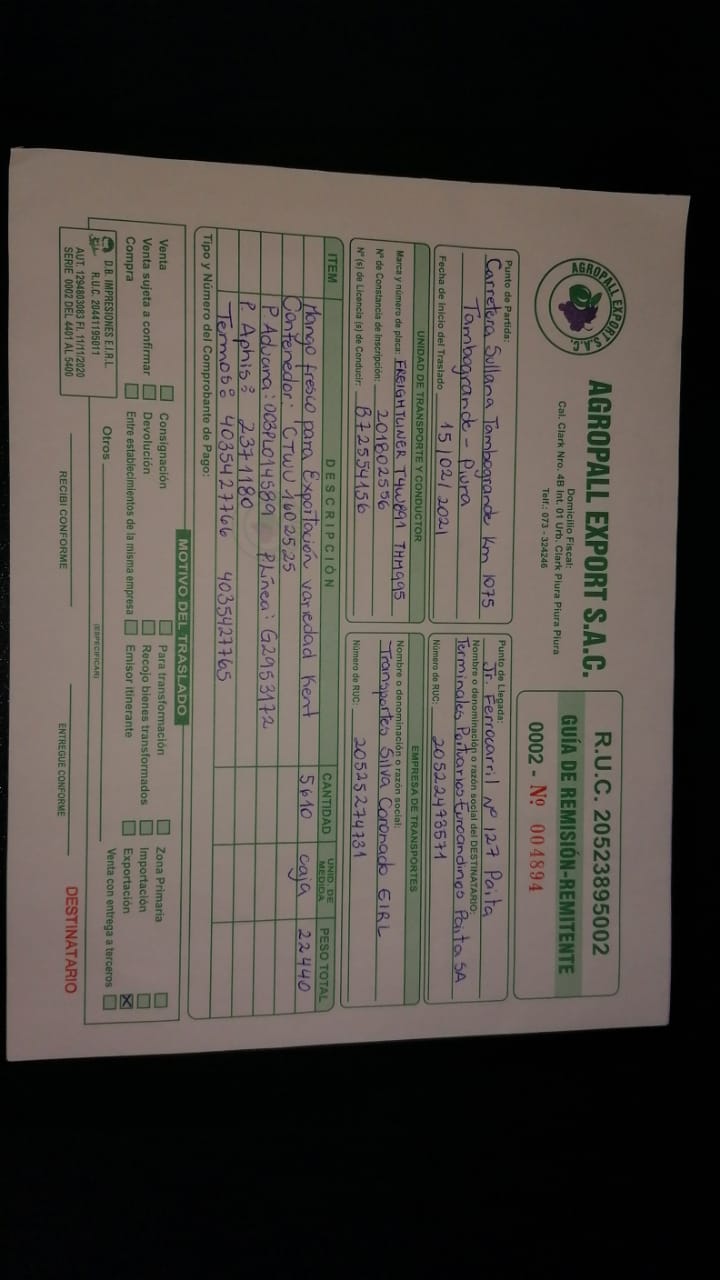 AGROPALL EXPORT S.A.C.
AGROPALL EXPORT S.A.C.
Domicilio Fiscal:
Cal. Clark Nro. 4B Int. 01 Urb. Clark Piura Piura Piura
Telf.: 073 - 324246
R.U.C. 20523895002
GUÍA DE REMISIÓN-REMITENTE
0002 - Nº 004894
Punto de Partida:
Carretera Sullana Tambogrande Km 1075
Tambogrande - Piura
Fecha de Inicio del Traslado 15/02/2021
Punto de Llegada:
Jr. Ferrocarril Nº 127 Paita
Nombre o denominación o razón social del DESTINATARIO:
Terminales Portuarios Euroandinos Paita SA
Número de RUC: 20522473571
UNIDAD DE TRANSPORTE Y CONDUCTOR
Marca y número de placa: FREIGHTLINER T4W891 THM995
Nº de Constancia de Inscripción: 201802556
Nº (s) de Licencia (s) de Conducir: B72554156
EMPRESA DE TRANSPORTES
Nombre o denominación o razón social:
Transportes Silva Coronado EIRL
Número de RUC: 20525274731
ITEM DESCRIPCIÓN CANTIDAD UNID. DE MEDIDA PESO TOTAL
Mango fresco para Exportación variedad Kent 5610 caja 22440
Contenedor: CTWU 1602525
P Aduana: 003PL014589 PLínea: G2953172
P. Aphis: 2371180
Termos: 4035427766 4035427765
Tipo y Número del Comprobante de Pago:
MOTIVO DEL TRASLADO
Venta Consignación Para transformación Zona Primaria
Venta sujeta a confirmar Devolución Recojo bienes transformados Importación
Compra Entre establecimientos de la misma empresa Emisor itinerante Exportación X
Otros Venta con entrega a terceros
(ESPECIFICAR)
D.B. IMPRESIONES E.I.R.L.
R.U.C. 20441195011
AUT. 1294803083 FI. 11/11/2020
SERIE 0002 DEL 4401 AL 5400
RECIBI CONFORME
ENTREGUE CONFORME
DESTINATARIO